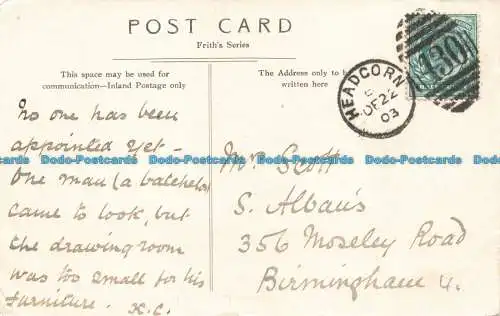 POST CARD
Frith's Series
This space may be used for
communication—Inland Postage only
The Address only to be
written here
HEADCORN
DE 22
03
130
No one has been
appointed yet -
One man (a batchelor
came to look, but
the drawing room
was too small for his
furniture. K.C.
Mr Scott
S. Alban's
356 Moseley Road
Birmingham 4.
Dodo-Postcards Dodo-Postcards Dodo-Postcards Dodo-Postcards Dodo-Postcards